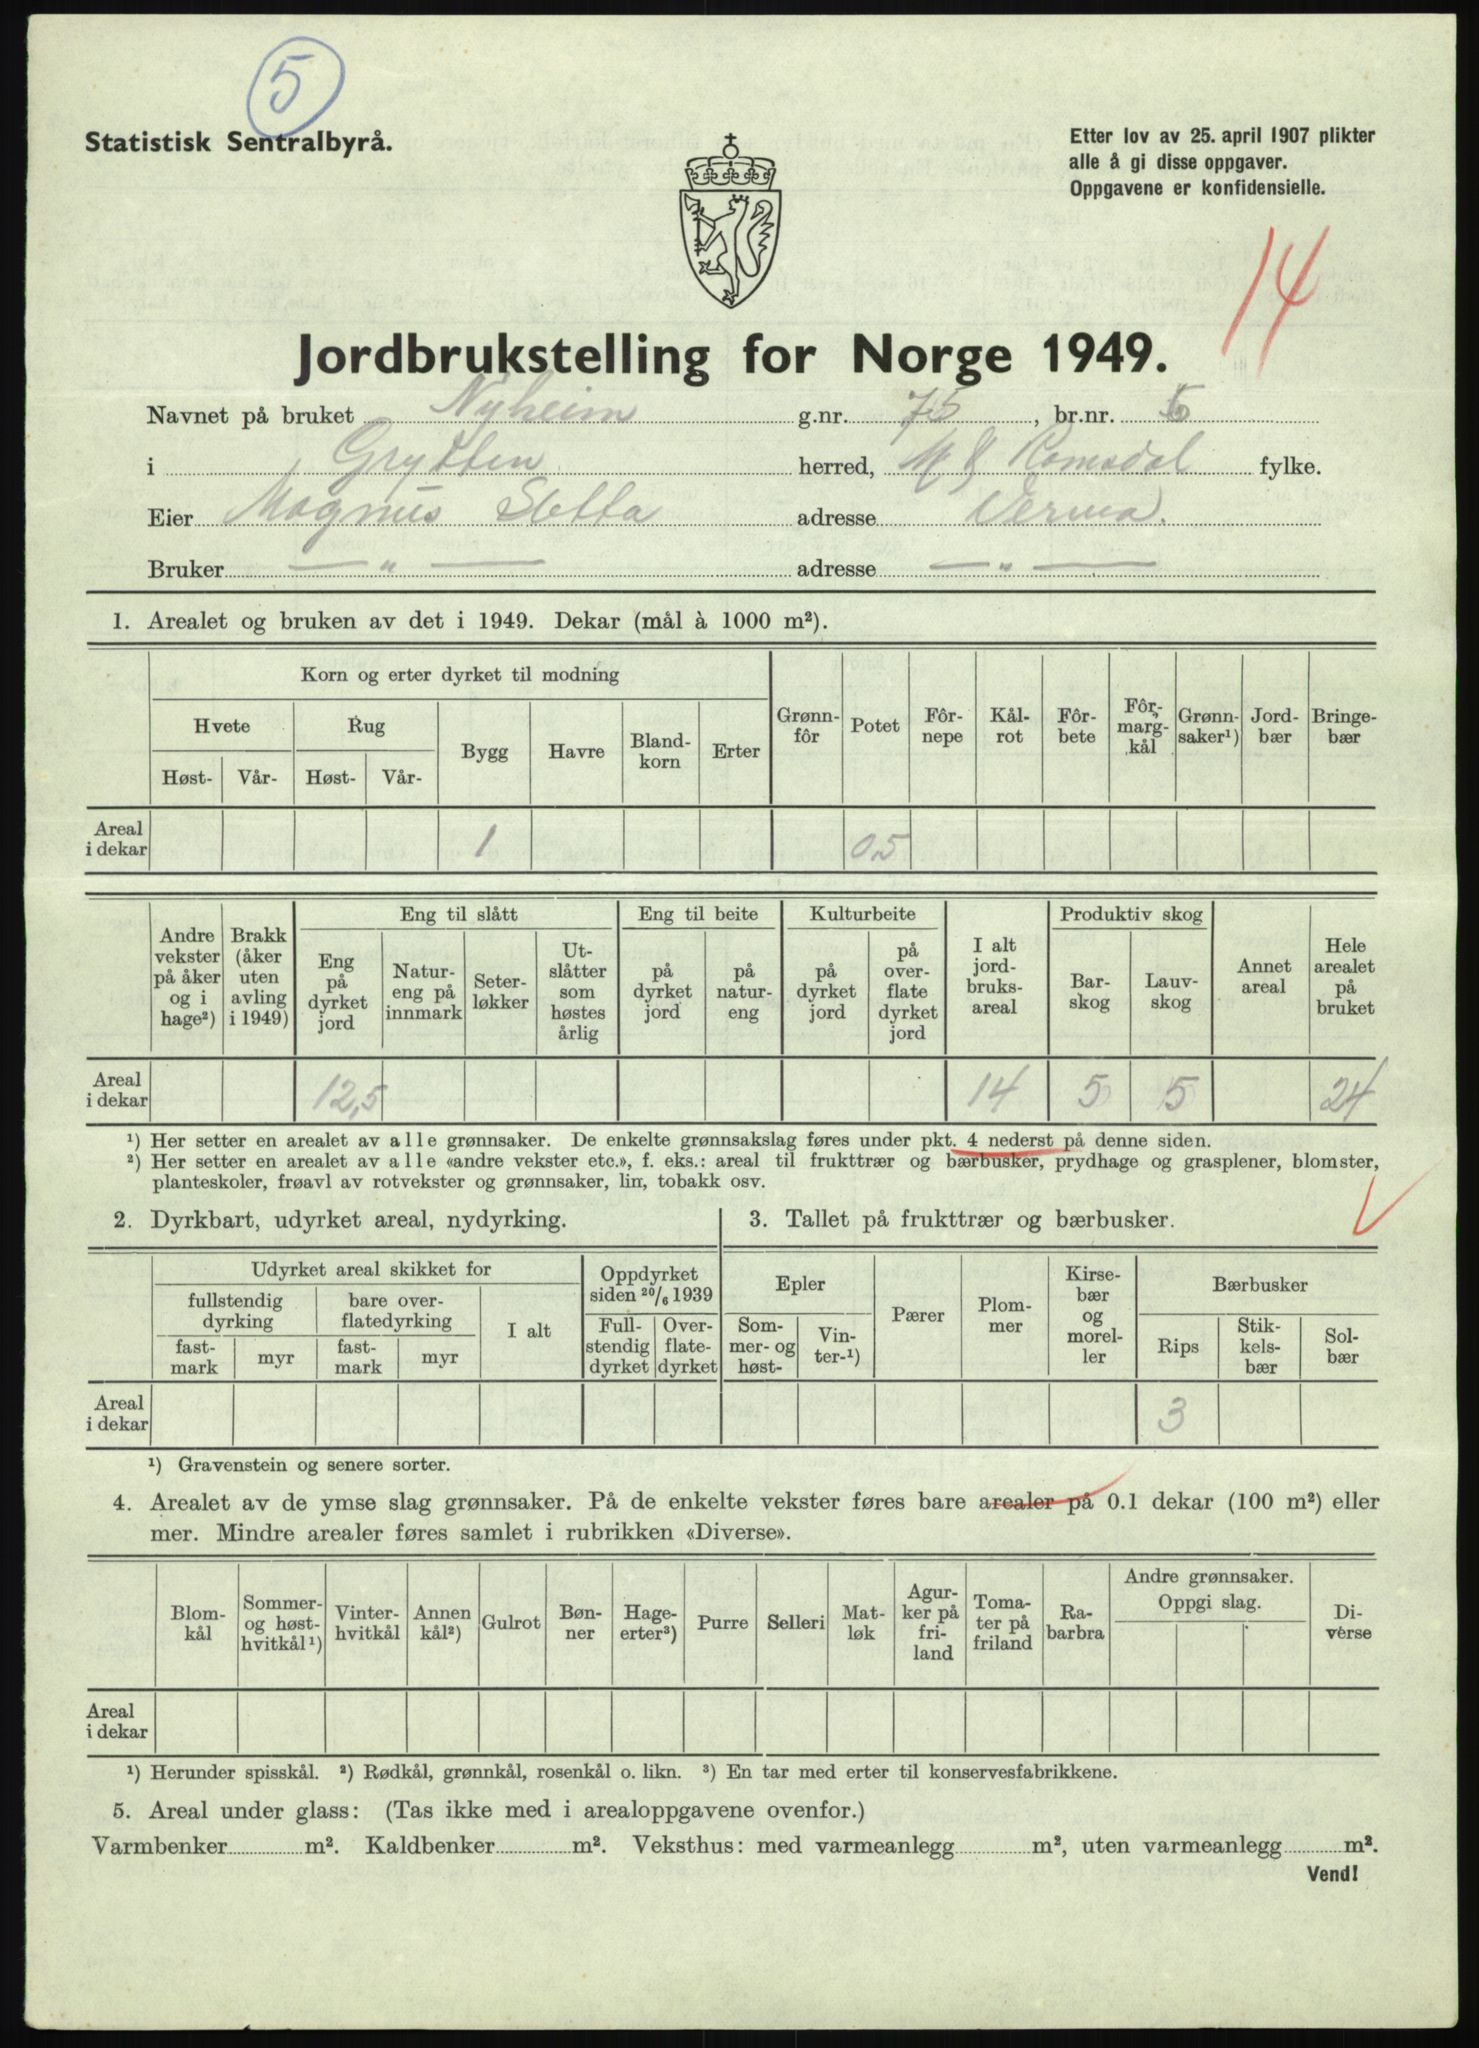 5
Statistisk Sentralbyrå.
Etter lov av 25. april 1907 plikter
alle å gi disse oppgaver.
Oppgavene er konfidensielle.
14
Jordbrukstelling for Norge 1949.
Navnet på bruket Nyheim g.nr. 75, br.nr.
i Grytten herred, M & Romsdal fylke.
Eier Magnus Sletta adresse Verma.
Bruker — „ — adresse — „ —
1. Arealet og bruken av det i 1949. Dekar (mål à 1000 m²).
Korn og erter dyrket til modning
Hvete Rug Bygg Havre Bland-korn Erter Grønn-fôr Potet Fôr-nepe Kål-rot Fôr-bete Fôr-marg-kål Grønn-saker¹) Jord-bær Bringe-bær
Høst- Vår- Høst- Vår-
Areal i dekar 1 0,5
Eng til slått Eng til beite Kulturbeite Produktiv skog
Andre vekster på åker og i hage²) Brakk (åker uten avling i 1949) Eng på dyrket jord Natur-eng på innmark Seter-løkker Ut-slåtter som høstes årlig på dyrket jord på natur-eng på dyrket jord på over-flate dyrket jord I alt jord-bruks-areal Bar-skog Lauv-skog Annet areal Hele arealet på bruket
Areal i dekar 12,5 14 5 5 24
¹) Her setter en arealet av alle grønnsaker. De enkelte grønnsakslag føres under pkt. 4 nederst på denne siden.
²) Her setter en arealet av alle «andre vekster etc.», f. eks.: areal til frukttrær og bærbusker, prydhage og grasplener, blomster,
planteskoler, frøavl av rotvekster og grønnsaker, lin, tobakk osv.
2. Dyrkbart, udyrket areal, nydyrking.
3. Tallet på frukttrær og bærbusker.
Udyrket areal skikket for Oppdyrket siden 20/6 1939 Epler Pærer Plom-mer Kirse-bær og morel-ler Bærbusker
fullstendig dyrking bare over-flatedyrking I alt Full-stendig dyrket Over-flate-dyrket Som-mer- og høst- Vin-ter-¹) Rips Stik-kels-bær Sol-bær
fast-mark myr fast-mark myr
Areal i dekar 3
¹) Gravenstein og senere sorter.
4. Arealet av de ymse slag grønnsaker. På de enkelte vekster føres bare arealer på 0.1 dekar (100 m²) eller
mer. Mindre arealer føres samlet i rubrikken «Diverse».
Blom-kål Sommer- og høst-hvitkål¹) Vinter-hvitkål Annen kål²) Gulrot Bøn-ner Hage-erter³) Purre Selleri Mat-løk Agur-ker på fri-land Toma-ter på friland Ra-barbra Andre grønnsaker. Oppgi slag. Di-verse
Areal i dekar
¹) Herunder spisskål. ²) Rødkål, grønnkål, rosenkål o. likn. ³) En tar med erter til konservesfabrikkene.
5. Areal under glass: (Tas ikke med i arealoppgavene ovenfor.)
Varmbenker m². Kaldbenker m². Veksthus: med varmeanlegg m², uten varmeanlegg m².
Vend!